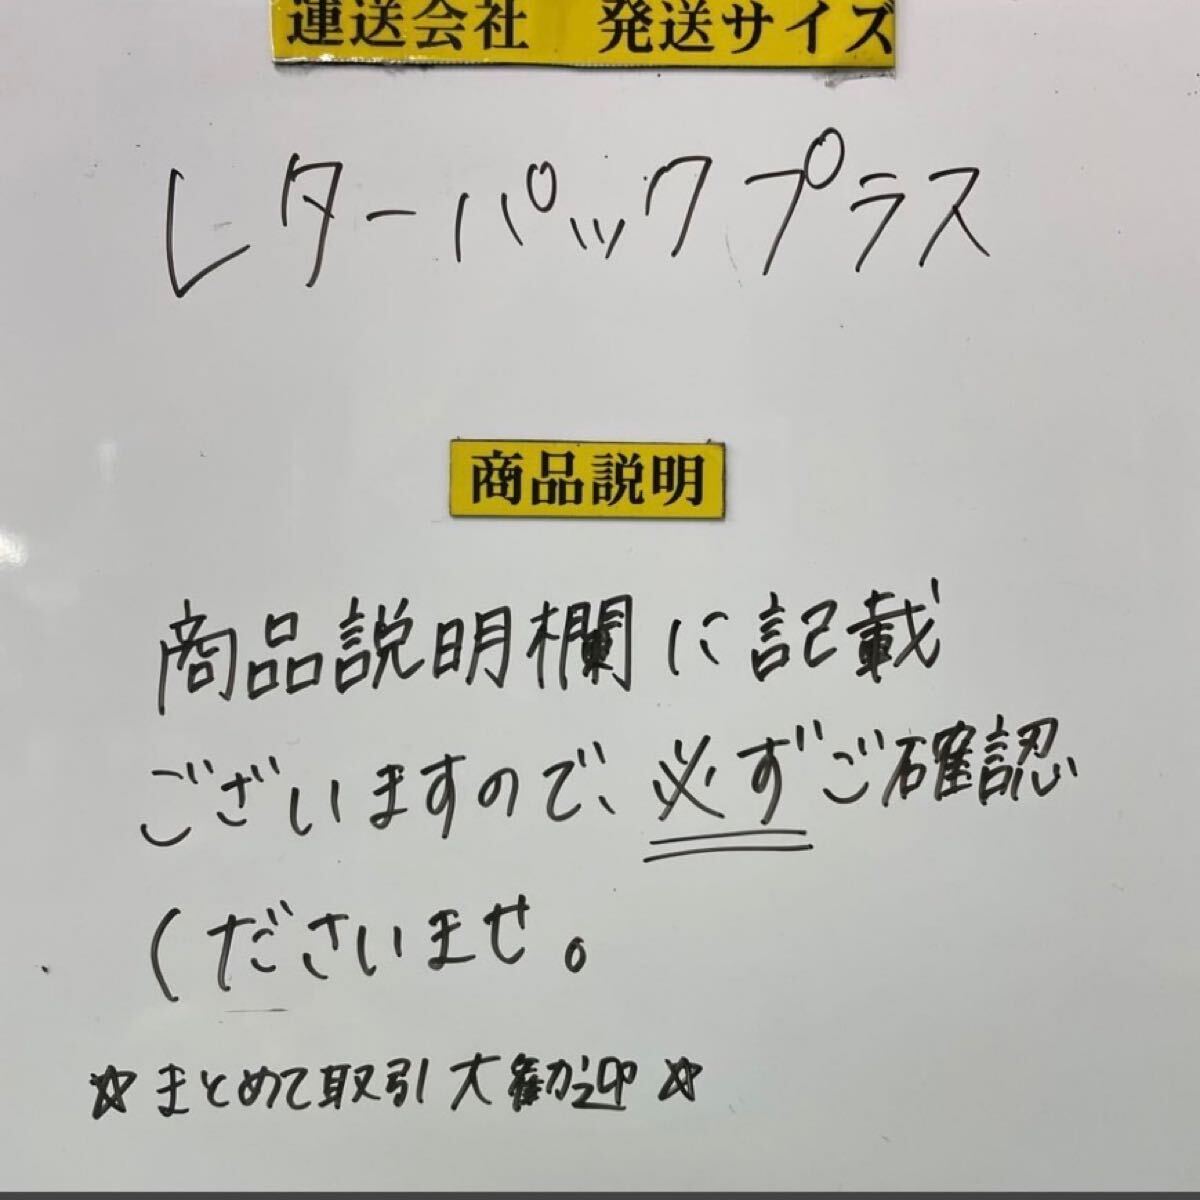 運送会社　発送サイズ
レターパックプラス
商品説明
商品説明欄に記載
ございますので、必ずご確認
くださいませ。
☆まとめて取引大歓迎☆